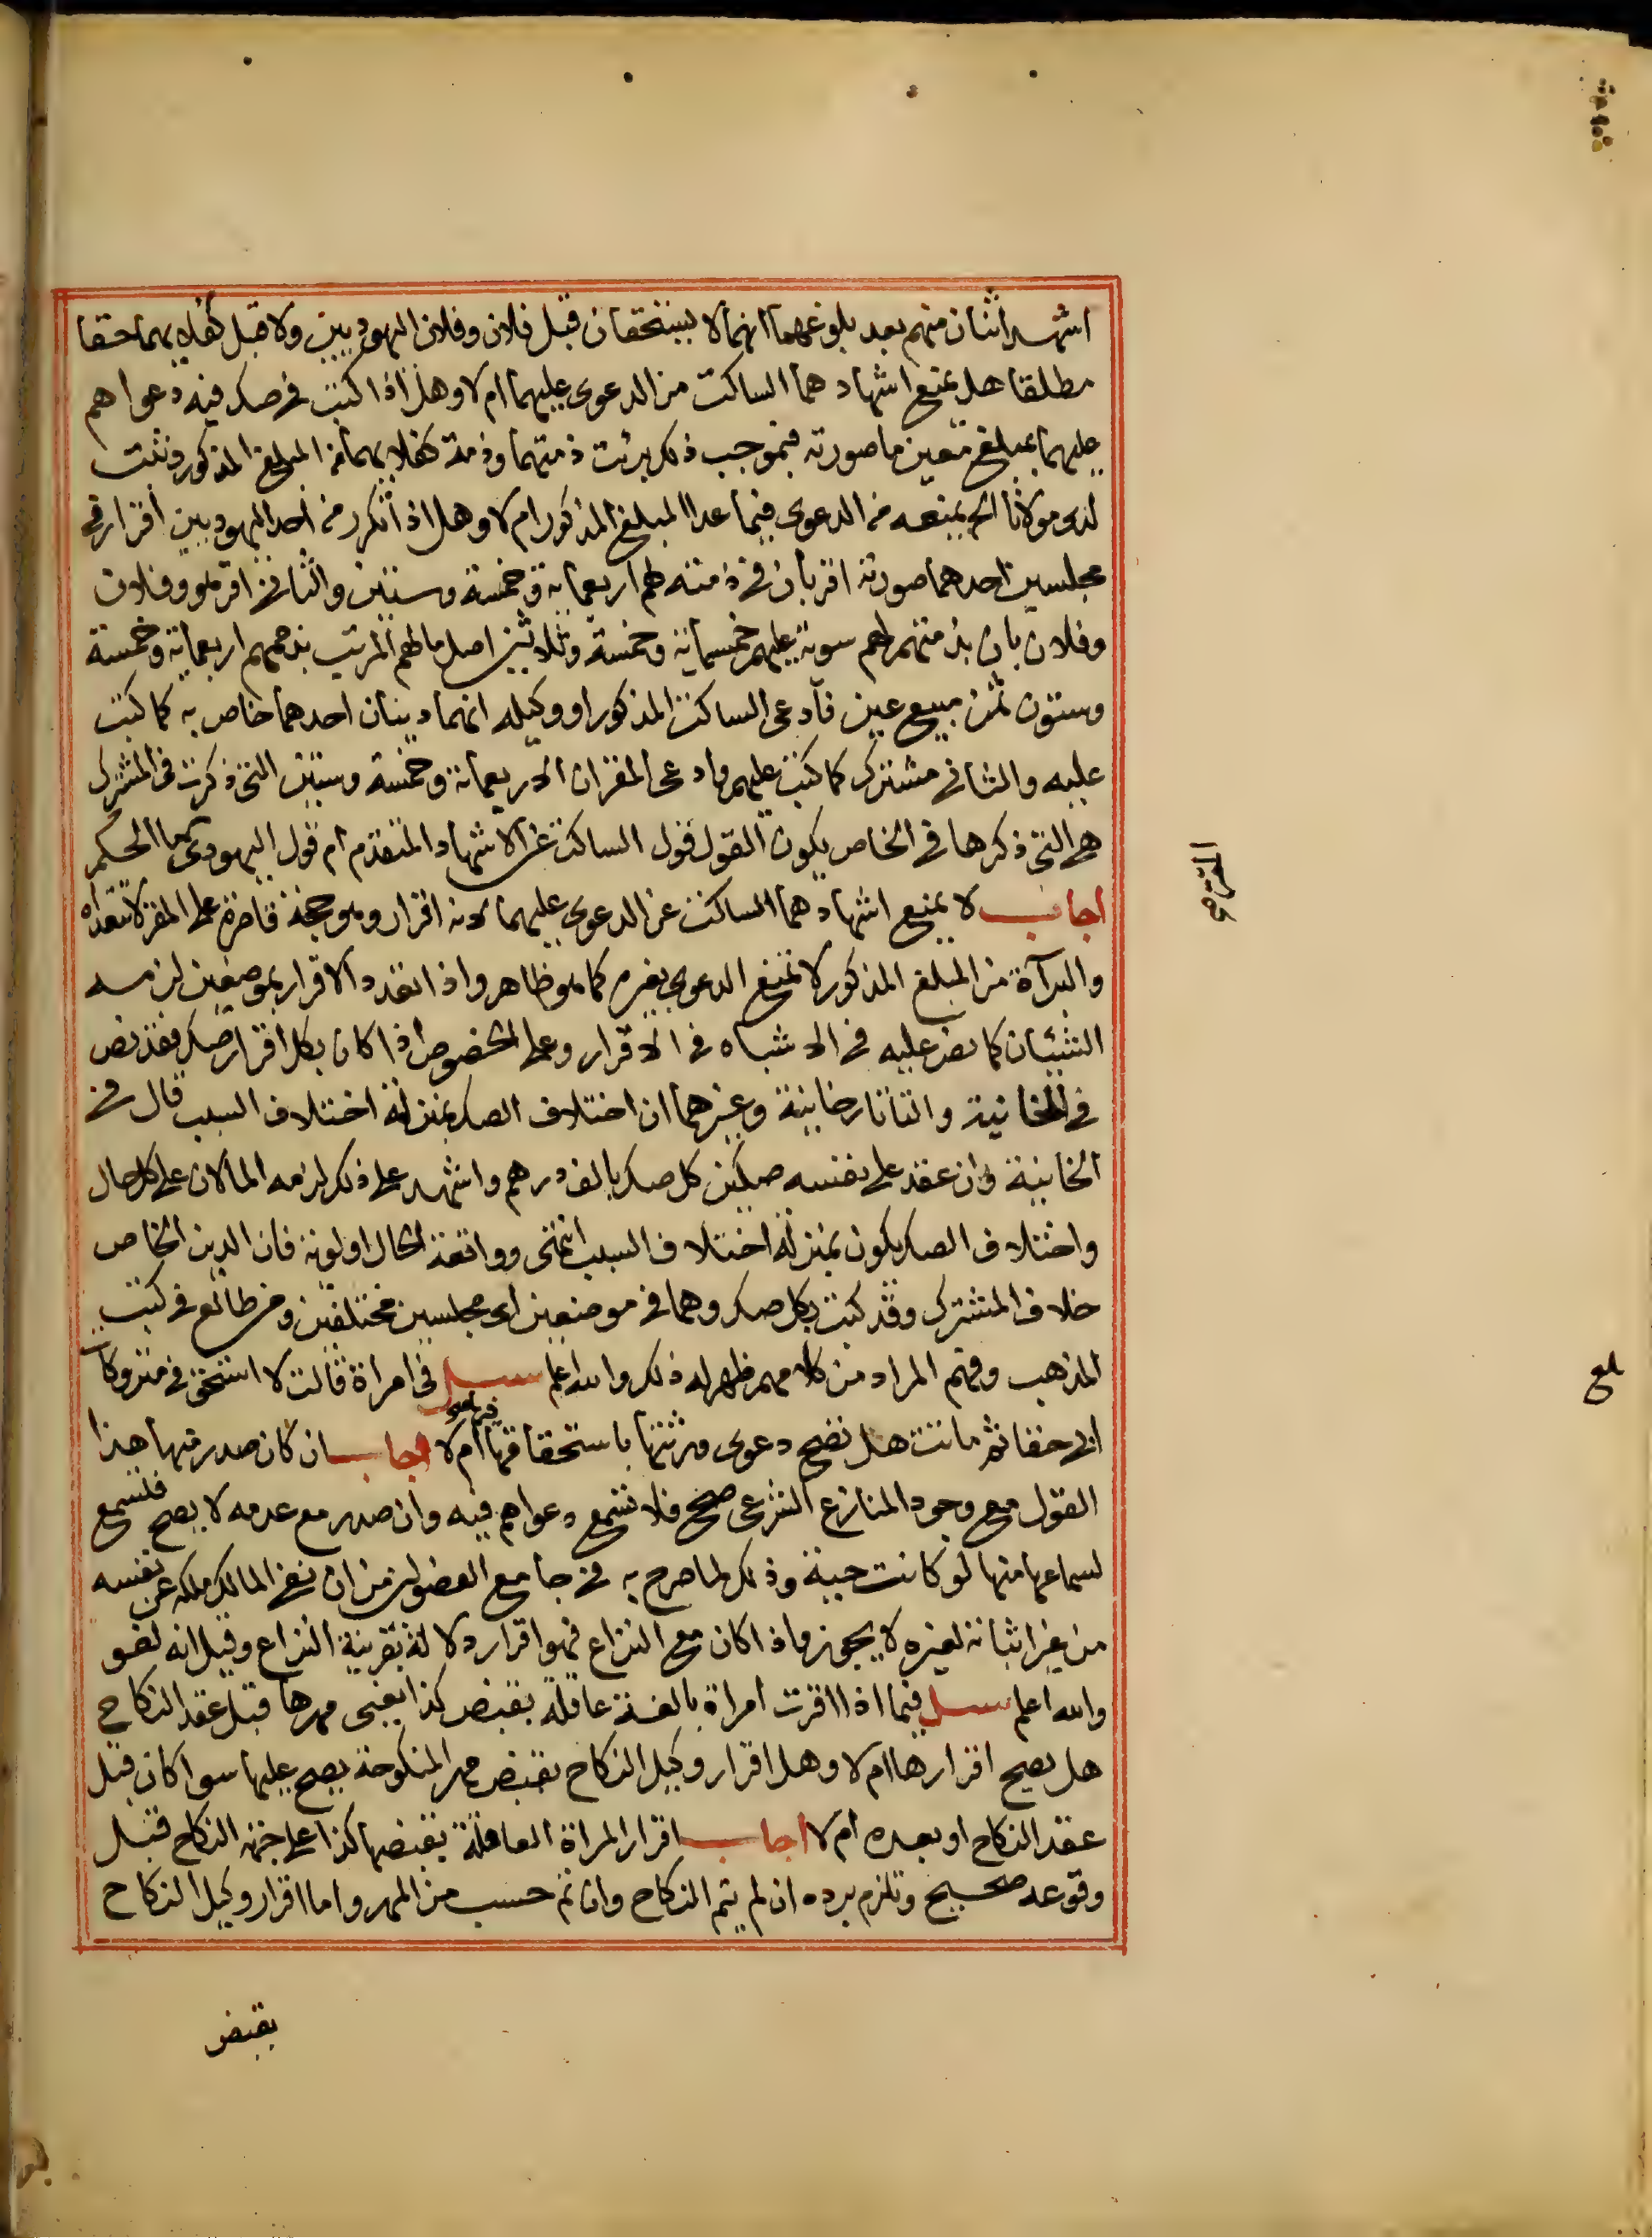 اشهد اثنان منهم بعد بلوغهما انهما لا يستحقان قبل فلان وفلان اليهوديين ولا قبل كفلايهما حقا
مطلقا هل يمنع اشهادهما الساكت من الدعوى عليهما ام لا وهل اذا كتب في صك فيه دعواهم
عليهما بمبلغ معين ما صورته فبموجب ذلك برئت ذمتهما وذمة كفلايهما من المبلغ المذكور وثبت
لدى مولانا الخ يمنعه من الدعوى فيما عدا المبلغ المذكور ام لا وهل اذا تكرر من احد اليهوديين اقرار في
مجلسين احدهما صورته اقر بان في ذمته لهم اربعماية وخمسة وستين والثاني اقر هو وفلان
وفلان بان بذمتهم لهم سوية عليهم خمسماية وخمسة وثلاثين اصل مالهم المرتب بذممهم اربعماية وخمسة
وستون ثمن مبيع عين فادعى الساكت المذكور او وكيله انهما دينان احدهما خاص به كما كتب
عليه والثاني مشترك كما كتب عليهم وادعى المقر ان الاربعماية وخمسة وستين التي ذكرت في المشترك
هي التي ذكرها في الخاص يكون القول قول الساكت عن الاشهاد المتقدم ام قول اليهودي ما الحكم
اجاب لا يمنع اشهادهما الساكت عن الدعوى عليهما لانه اقرار وهو حجة قاصرة على المقر لا تتعداه
والبرآة من المبلغ المذكور لا تمنع الدعوى بغيره كما هو ظاهر واذا تعدد الاقرار بموضعين لزمه
الشيئان كما نص عليه في الاشباه في الاقرار وعلى الخصوص اذا كان بكل اقرار صك فقد نص
في الخانية والتاتارخانية وغيرهما ان اختلاف الصك بمنزلة اختلاف السبب قال في
الخانية وان عقد على نفسه صكين كل صك بالف درهم واشهد على ذلك لزمه المالان على كل حال
واختلاف الصك يكون بمنزلة اختلاف السبب انتهى وواقعة الحال اولوية فان الدين الخاص
خلاف المشترك وقد كتب بكل صك وهما في موضعين اى مجلسين مختلفين ومن طالع في كتب
المذهب وفهم المراد من كلامهم ظهر له ذلك والله اعلم سئل في امراة قالت لا استحق في متروكات
ابي حقا ثم ماتت هل تصح دعوى ورثتها باستحقاقها ام لا اجاب ان كان صدر منها هذا
القول مع وجود المنازع الشرعى صح فلا تسمع دعواهم فيه وان صدر مع عدمه لا يصح فتسمع
لسماعها منها لو كانت حية وذلك لما صرح به في جامع الفصولين من ان نفي المالك ملكه عن نفسه
من غير اثباته لغيره لا يجوز واذا كان مع النزاع فهو اقرار دلالة بقرينة النزاع وقيل انه لغو
والله اعلم سئل فيما اذا اقرت امراة بالغة عاقلة بقبض كذا يعنى مهرها قبل عقد النكاح
هل يصح اقرارها ام لا وهل اقرار وكيل النكاح بقبض مهر المنكوحة يصح عليها سوا كان قبل
عقد النكاح او بعده ام لا اجاب اقرار المراة العاقلة بقبضها كذا على جهة النكاح قبل
وقوعه صحيح وتلزم برده ان لم يتم النكاح وان تم حسب من المهر واما اقرار وكيل النكاح
بقبض